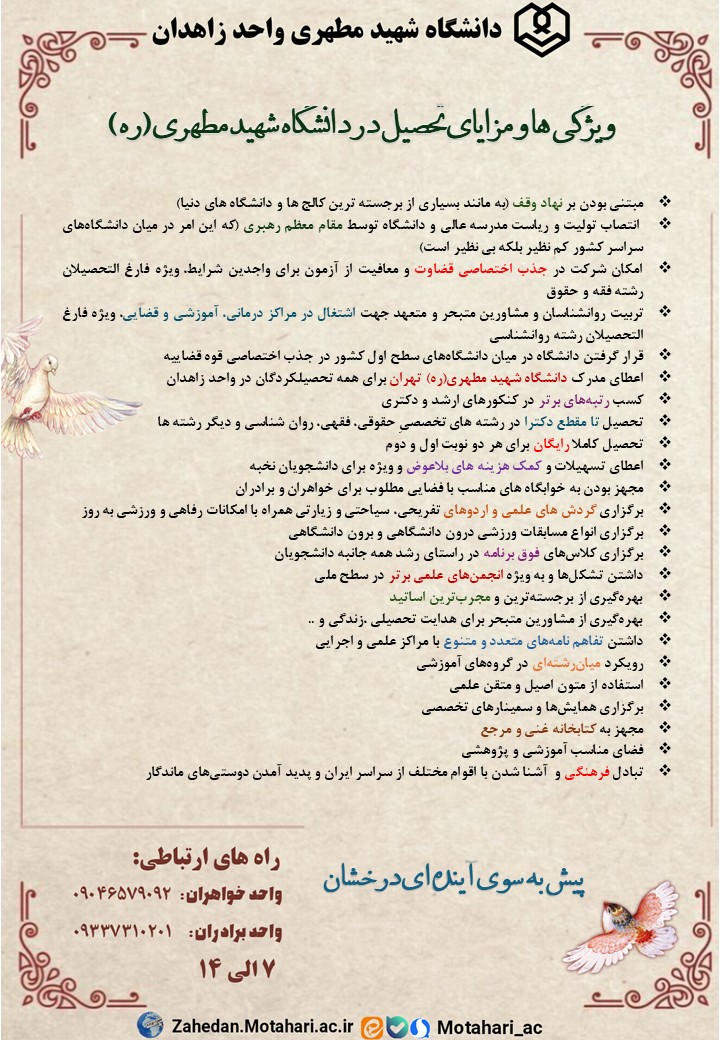 دانشگاه شهید مطهری واحد زاهدان
ویژگی ها و مزایای تحصیل در دانشگاه شهید مطهری (ره)
❖ مبتنی بودن بر نهاد وقف (به مانند بسیاری از برجسته ترین کالج ها و دانشگاه های دنیا)
❖ انتصاب تولیت و ریاست مدرسه عالی و دانشگاه توسط مقام معظم رهبری (که این امر در میان دانشگاه‌های
سراسر کشور کم نظیر بلکه بی نظیر است)
❖ امکان شرکت در جذب اختصاصی قضاوت و معافیت از آزمون برای واجدین شرایط، ویژه فارغ التحصیلان
رشته فقه و حقوق
❖ تربیت روانشناسان و مشاورین متبحر و متعهد جهت اشتغال در مراکز درمانی، آموزشی و قضایی، ویژه فارغ
التحصیلان رشته روانشناسی
❖ قرار گرفتن دانشگاه در میان دانشگاه‌های سطح اول کشور در جذب اختصاصی قوه قضاییه
❖ اعطای مدرک دانشگاه شهید مطهری(ره) تهران برای همه تحصیلکردگان در واحد زاهدان
❖ کسب رتبه‌های برتر در کنکورهای ارشد و دکتری
❖ تحصیل تا مقطع دکترا در رشته های تخصصیِ حقوقی، فقهی، روان شناسی و دیگر رشته ها
❖ تحصیل کاملا رایگان برای هر دو نوبت اول و دوم
❖ اعطای تسهیلات و کمک هزینه های بلاعوض و ویژه برای دانشجویان نخبه
❖ مجهز بودن به خوابگاه های مناسب با فضایی مطلوب برای خواهران و برادران
❖ برگزاری گردش های علمی و اردوهای تفریحی، سیاحتی و زیارتی همراه با امکانات رفاهی و ورزشی به روز
❖ برگزاری انواع مسابقات ورزشی درون دانشگاهی و برون دانشگاهی
❖ برگزاری کلاس‌های فوق برنامه در راستای رشد همه جانبه دانشجویان
❖ داشتن تشکل‌ها و به ویژه انجمن‌های علمی برتر در سطح ملی
❖ بهره‌گیری از برجسته‌ترین و مجرب‌ترین اساتید
❖ بهره‌گیری از مشاورین متبحر برای هدایت تحصیلی ،زندگی و ..
❖ داشتن تفاهم نامه‌های متعدد و متنوع با مراکز علمی و اجرایی
❖ رویکرد میان‌رشته‌ای در گروه‌های آموزشی
❖ استفاده از متون اصیل و متقن علمی
❖ برگزاری همایش‌ها و سمینارهای تخصصی
❖ مجهز به کتابخانه غنی و مرجع
❖ فضای مناسب آموزشی و پژوهشی
❖ تبادل فرهنگی و آشنا شدن با اقوام مختلف از سراسر ایران و پدید آمدن دوستی‌های ماندگار
پیش به سوی آینده ای درخشان
راه های ارتباطی:
واحد خواهران: ۰۹۰۴۶۵۷۹۰۹۲
واحد برادران: ۰۹۳۳۷۳۱۰۲۰۱
۷ الی ۱۴
Zahedan.Motahari.ac.ir Motahari_ac